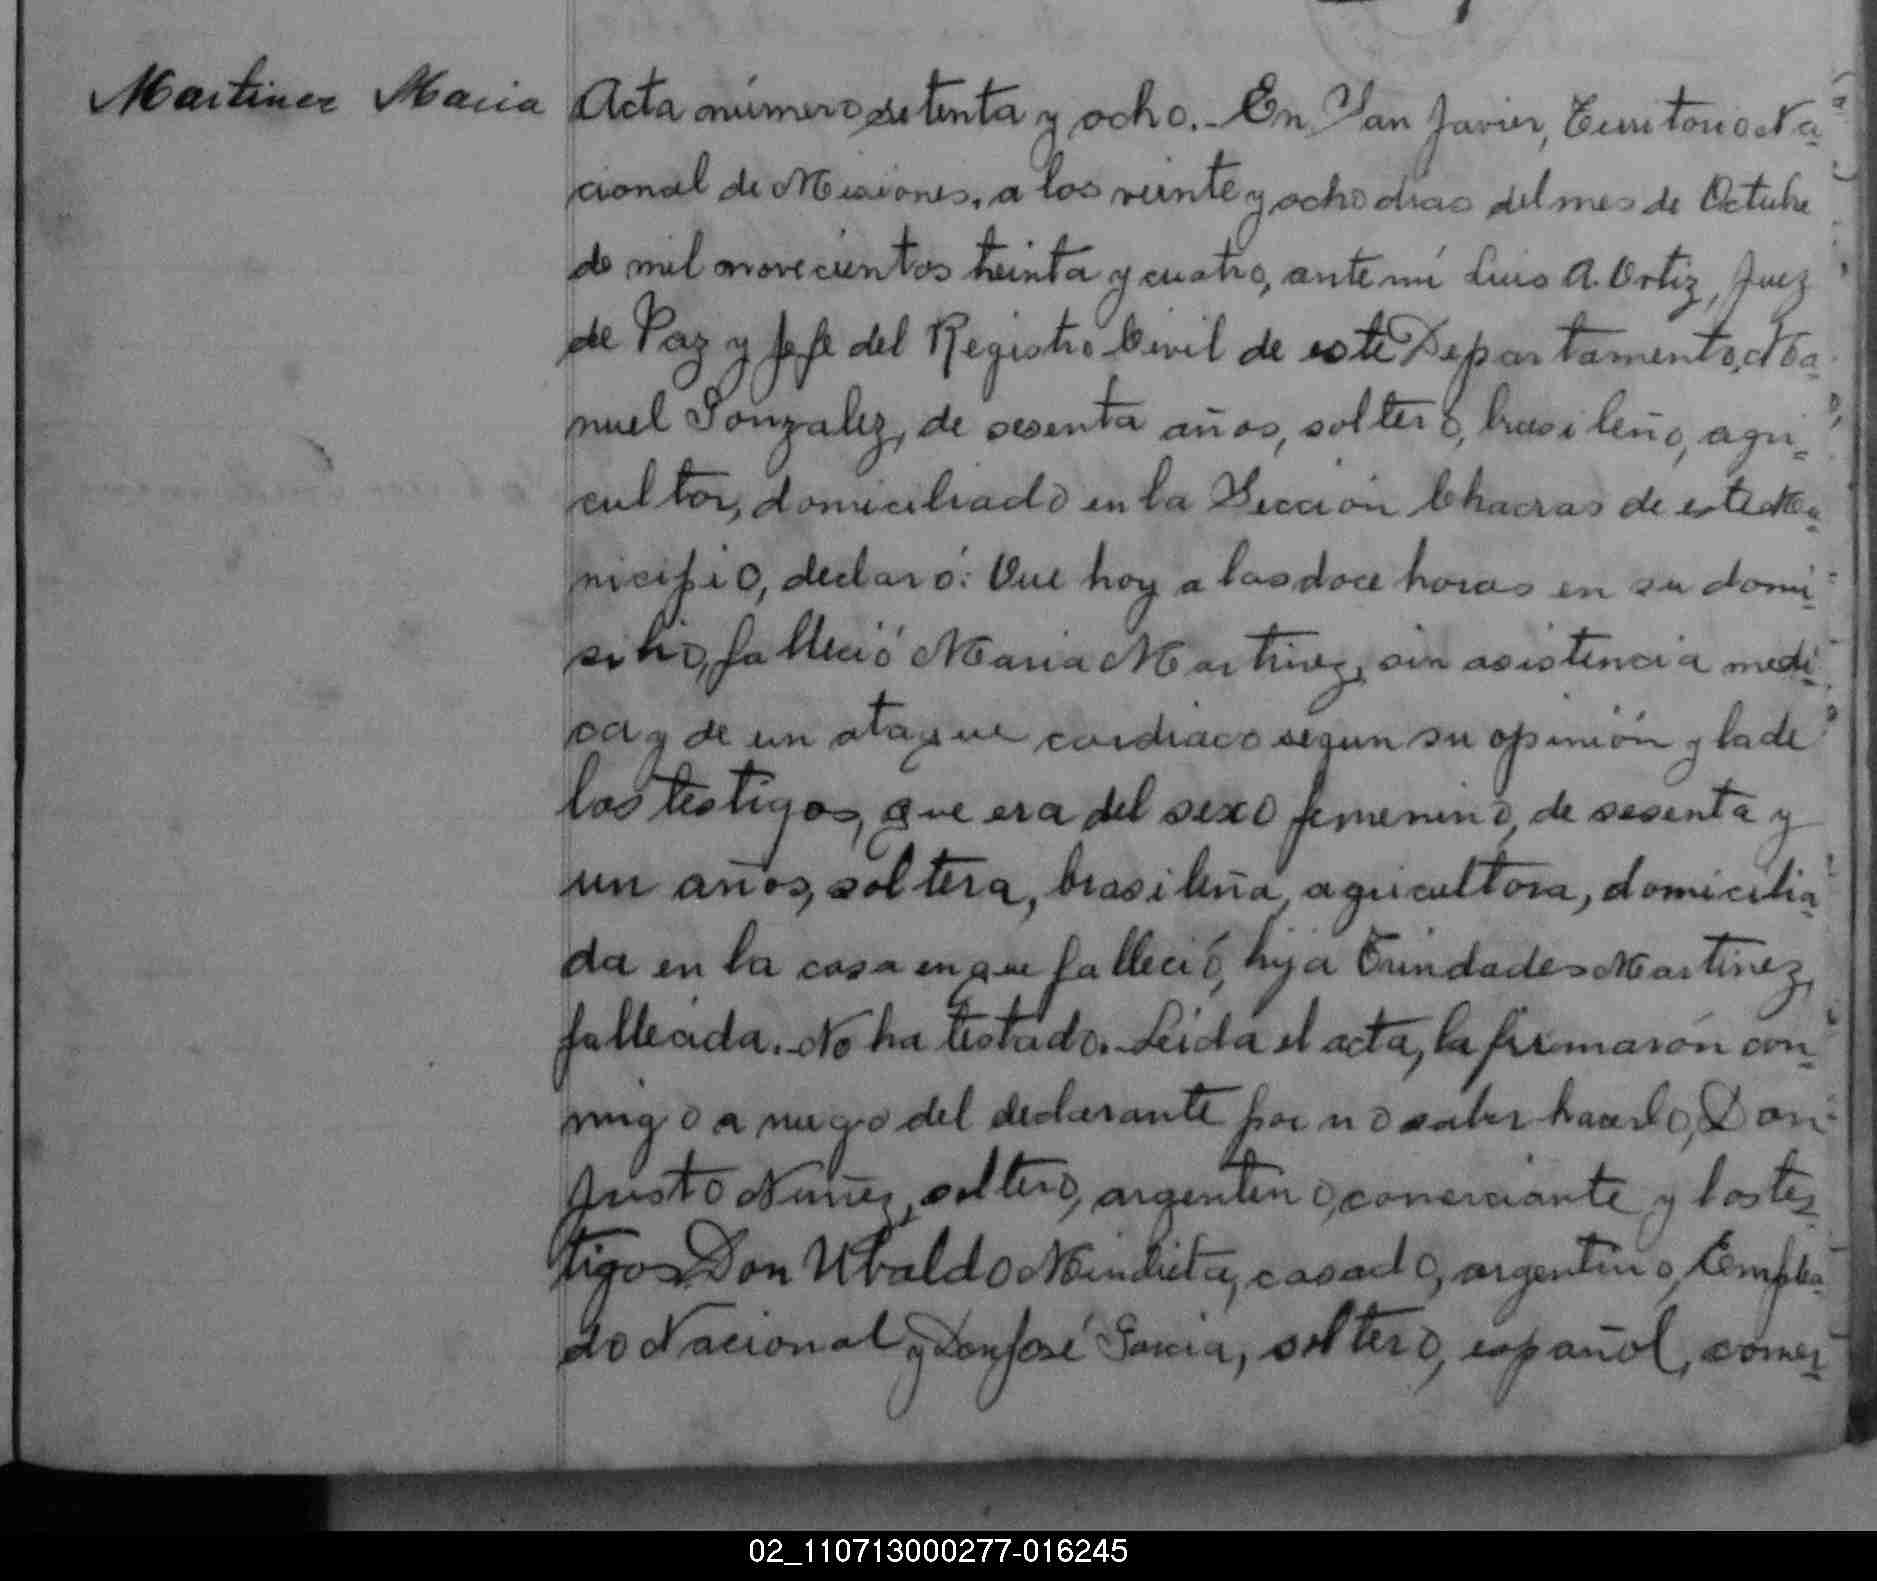 Martinez Maria
Acta número setenta y ocho.- En San Javier, Territorio Na-
cional de Misiones, a los veinte y ocho dias del mes de Octubre
de mil novecientos treinta y cuatro, ante mi Luis A. Ortiz, Juez
de Paz y Jefe del Registro Civil de este Departamento, Ma-
nuel Gonzalez, de sesenta años, soltero, brasileño, agri-
cultor, domiciliado en la Sección Chacras de este Mu-
nicipio, declaró: Que hoy a las doce horas en su domi-
silio, falleció Maria Martinez, sin asistencia medi-
ca y de un ataque cardiaco segun su opinión y la de
los testigos, que era del sexo femenino, de sesenta y
un años, soltera, brasileña, agricultora, domicilia-
da en la casa en que falleció, hija Trindades Martinez,
fallecida.- No ha testado.- Leida el acta, la firmarón con-
migo a ruego del declarante por no saber hacerlo, Don
Justo Nuñez, soltero, argentino, comerciante y los tes-
tigos Don Ubaldo Mendieta, casado, argentino, Emplea-
do Nacional y Don José Garcia, soltero, español, comer-
02_110713000277-016245